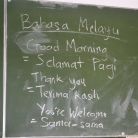 Bahasa Melayu
Good Morning
= Selamat Pagi
Thank you
= Terima Kasih
You're Welcome
= Sama-sama